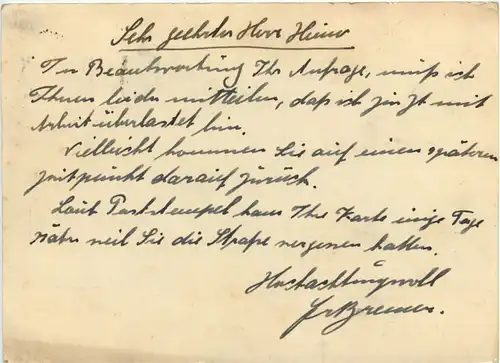 Sehr geehrter Herr Heine
In Beantwortung Ihr Anfrage, muß ich
Ihnen leider mitteilen, daß ich jetzt mit
Arbeit überlastet bin.
Vielleicht kommen Sie auf einen späteren
Zeitpunkt darauf zurück.
Laut Poststempel kam Ihre Karte einige Tage
später weil Sie die Straße vergessen hatten.
Hochachtungsvoll
Fr Bremer.